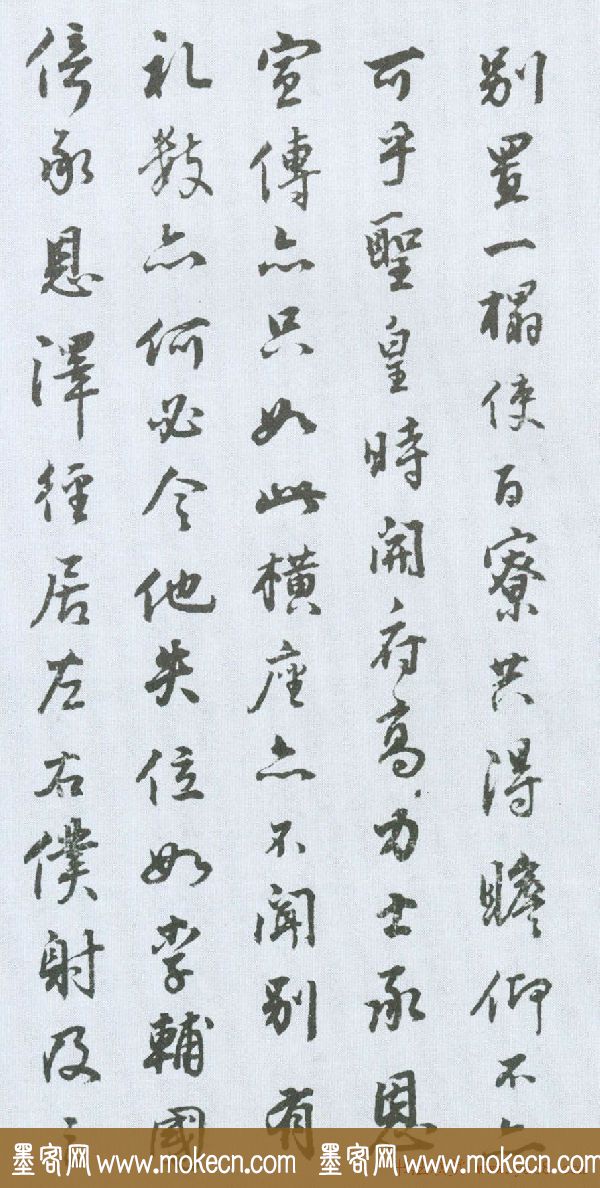 別置一榻使百寮共得瞻仰不亦
可乎聖皇時開府高力士承恩
宣傳亦只如此橫座亦不聞別有
礼數亦何必令他失位如李輔國
倚承恩澤徑居左右僕射及
墨客网 www.mokecn.com 墨客网 www.mokecn.com